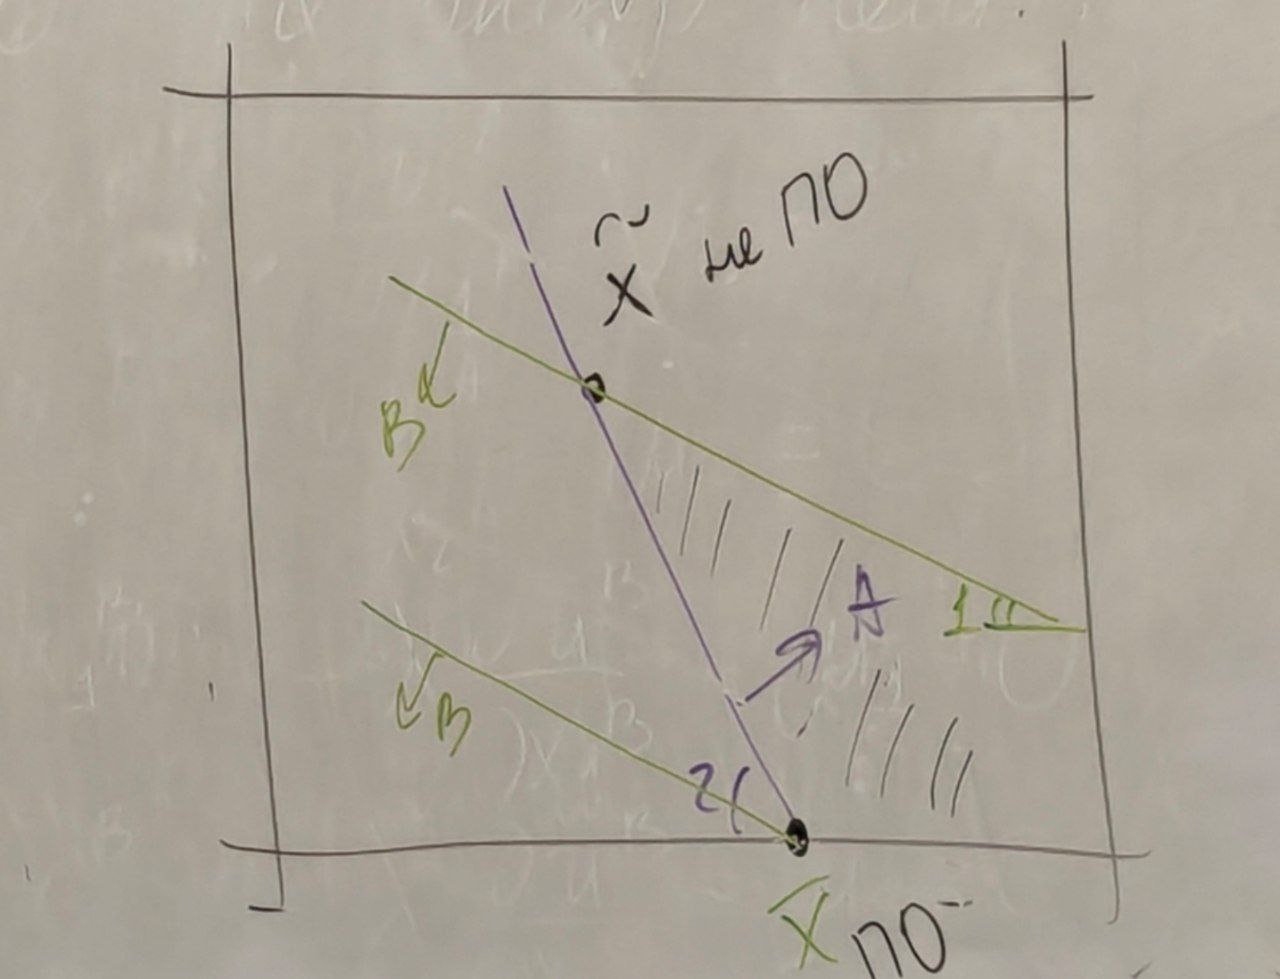 x̃ не ПО
B
A
1
B
2
x̄ ПО